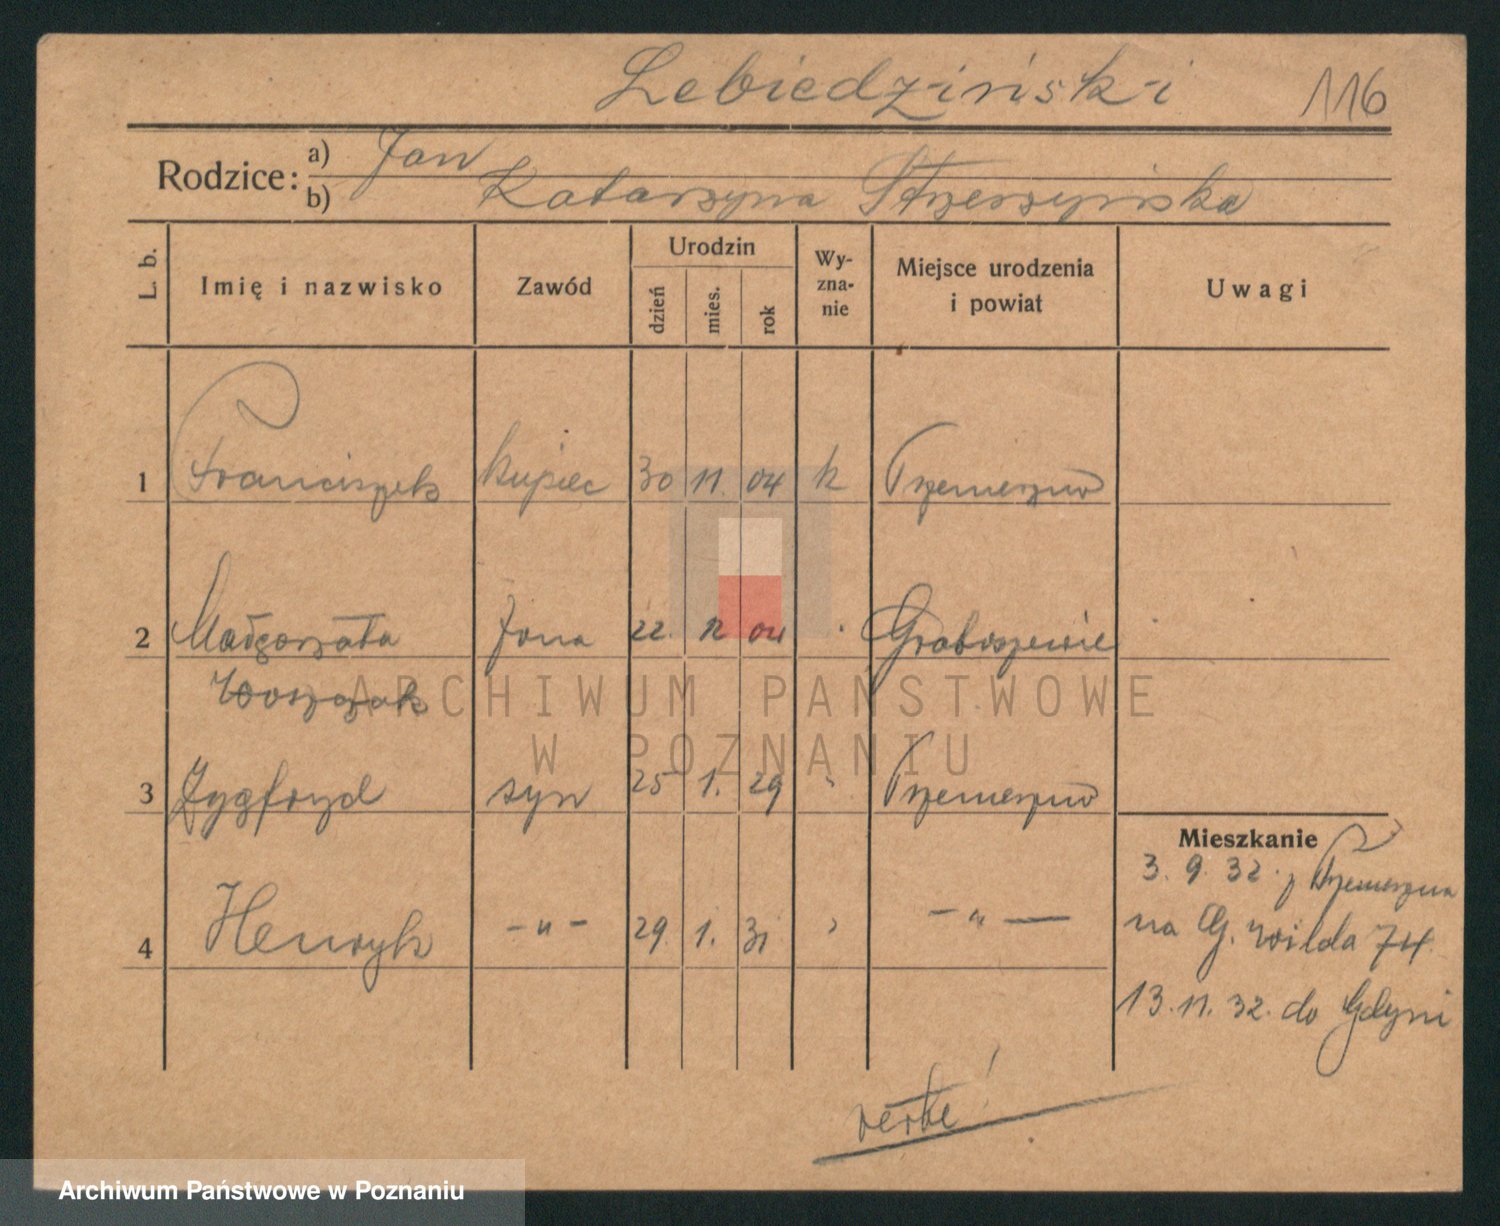 Lebiedziński 116
Rodzice: a) Jan
b) Katarzyna Strzeszyńska
L. b. Imię i nazwisko Zawód Urodzin dzień mies. rok Wy-zna-nie Miejsce urodzenia i powiat Uwagi
1 Franciszek kupiec 30 11. 04 k Trzemeszno
2 Małgorzata żona 22. 12 04 Graboszewie
3 Zygfryd syn 25 1. 29 " Trzemeszno
4 Henryk -"- 29. 1. 31 " -"-
Mieszkanie
3. 9. 32. z Trzemeszna
na G. Wilda 74.
13. 11. 32. do Gdyni
ARCHIWUM PAŃSTWOWE
W POZNANIU
Archiwum Państwowe w Poznaniu